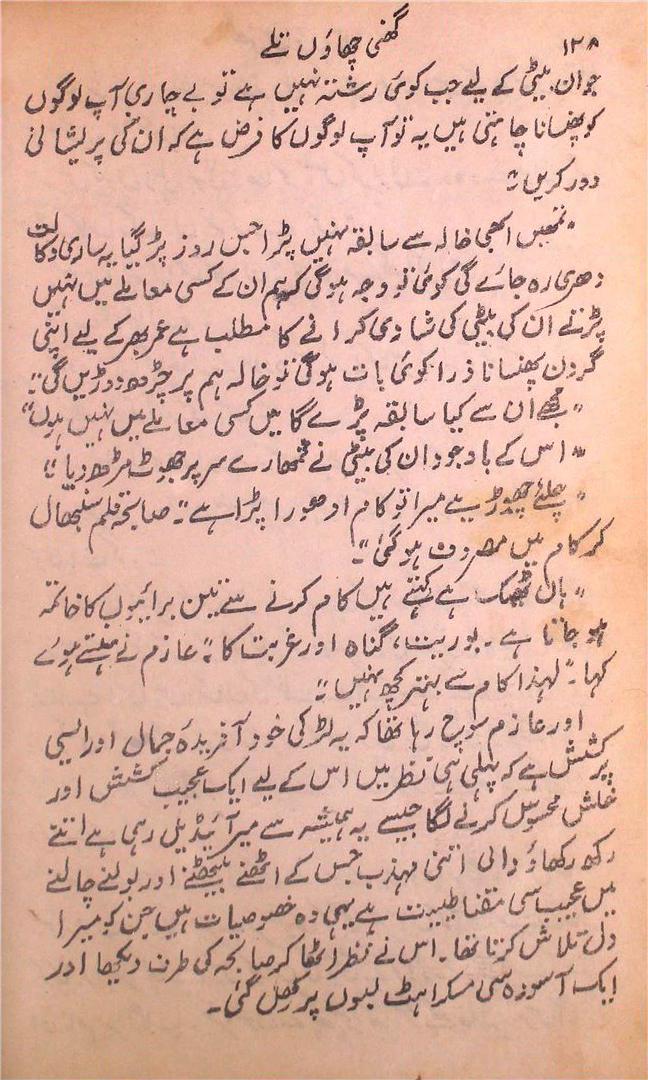 ۱۲۸
گھنی چھاؤں تلے
جوان بیٹی کے لیے جب کوئی رشتہ نہیں ہے تو بے چاری آپ لوگوں
کو پھنسانا چاہتی ہیں یہ تو آپ لوگوں کا فرض ہے کہ ان کی پریشانی
دور کریں"۔
"تمھیں ابھی خالہ سے سابقہ نہیں پڑا جس روز پڑ گیا یہ ساری وکالت
دھری رہ جائے گی کوئی تو وجہ ہوگی کہ ہم ان کے کسی معاملے میں نہیں
پڑتے ان کی بیٹی کی شادی کرانے کا مطلب ہے عمر بھر کے لیے اپنی
گردن پھنسانا ذرا کوئی بات ہوگی تو خالہ ہم پر چڑھ دوڑیں گی"۔
"مجھے ان سے کیا سابقہ پڑے گا میں کسی معاملے میں نہیں ہوں"
"اس کے باوجود ان کی بیٹی نے تمھارے سر پر جھوٹ مڑھ دیا"۔
"چلئے چھوڑیے میرا تو کام ادھورا پڑا ہے"۔ صابحہ قلم سنبھال
کر کام میں مصروف ہو گئی"۔
"ہاں ٹھیک ہے کہتے ہیں کام کرنے سے تین برائیوں کا خاتمہ
ہو جاتا ہے۔ بوریت، گناہ اور غربت کا"۔ عازم نے ہنستے ہوئے
کہا۔ "لہذا کام سے بہتر کچھ نہیں"۔
اور عازم سوچ رہا تھا کہ یہ لڑکی خود آفریدۂ جمال اور ایسی
پر کشش ہے کہ پہلی ہی نظر میں اس کے لیے ایک عجیب کشش اور
خلش محسوس کرنے لگا جیسے یہ ہمیشہ سے میرا آئیڈیل رہی ہے اتنے
رکھ رکھاؤ والی اتنی مہذب جس کے اٹھنے بیٹھنے اور بولنے چالنے
میں عجیب سی مقناطیسیت ہے یہی وہ خصوصیات ہیں جن کو میرا
دل تلاش کرتا تھا۔ اس نے نظر اٹھا کر صابحہ کی طرف دیکھا اور
ایک آسودہ سی مسکراہٹ لبوں پر کھل گئی۔